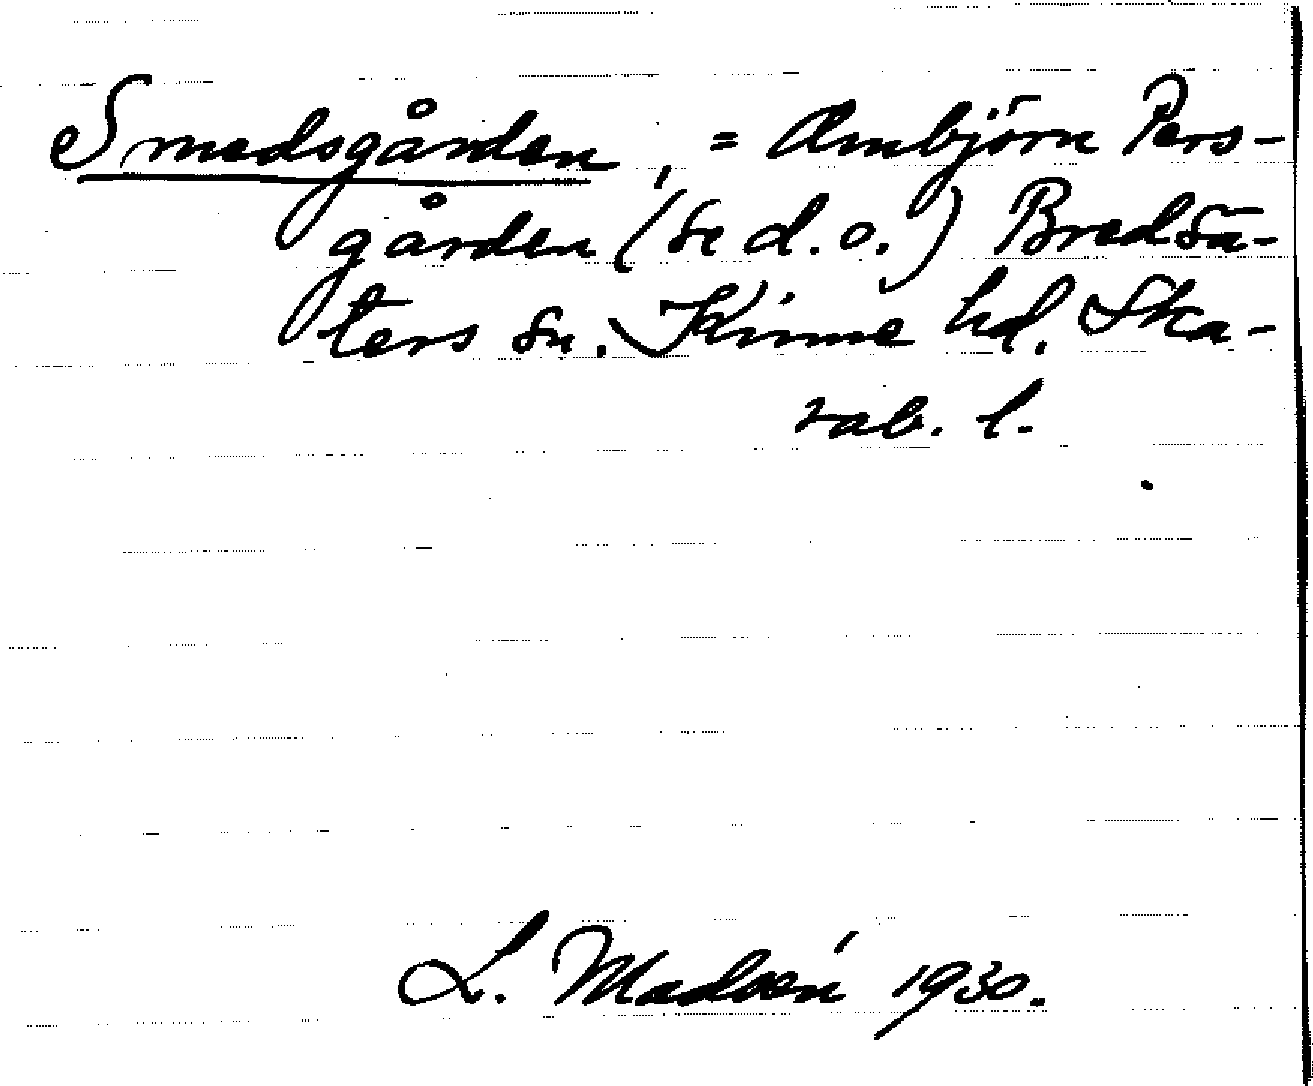 Smedsgården, = Ambjörn Pers-
gården (se d. o.) Bredsä-
ters sn. Kinne hd. Ska-
rab. l.
L. Madsén 1930.